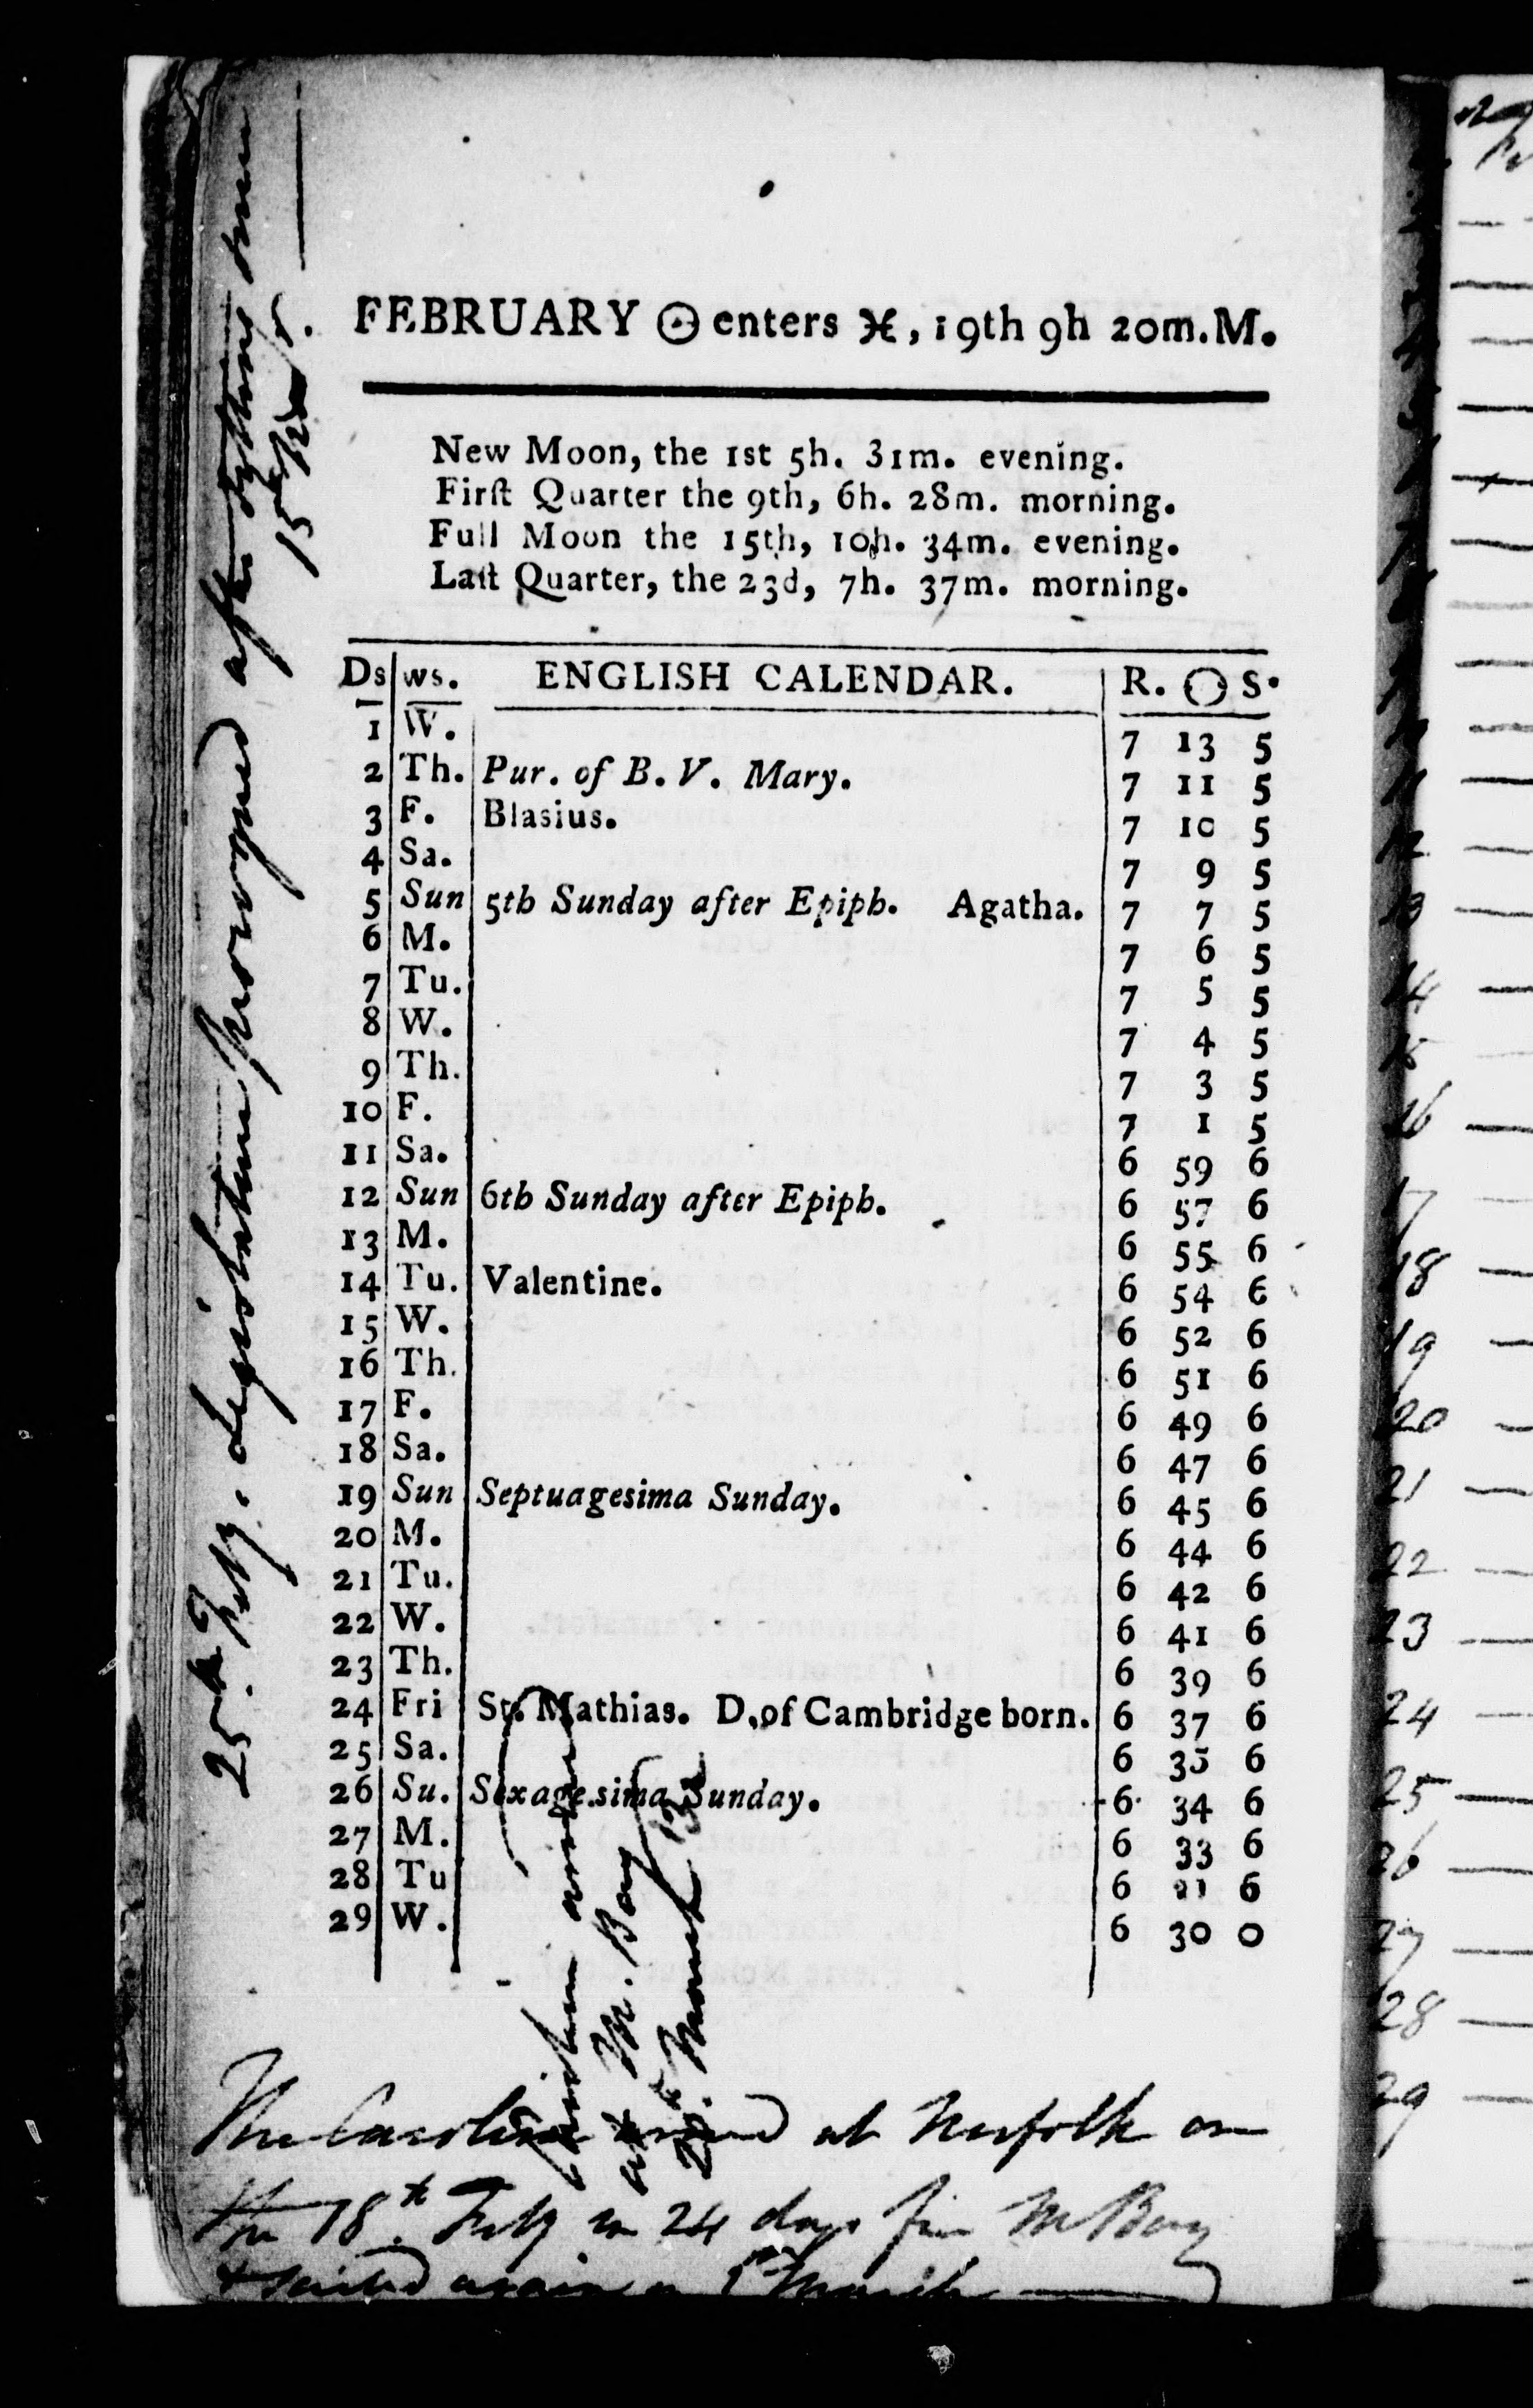 FEBRUARY ☉ enters ♓, 19th 9h 20m. M.
New Moon, the 1st 5h. 31m. evening.
Firſt Quarter the 9th, 6h. 28m. morning.
Full Moon the 15th, 10h. 34m. evening.
Laſt Quarter, the 23d, 7h. 37m. morning.
Ds ws. ENGLISH CALENDAR. R. ☉ S.
1 W. 7 13 5
2 Th. Pur. of B. V. Mary. 7 11 5
3 F. Blasius. 7 10 5
4 Sa. 7 9 5
5 Sun 5th Sunday after Epiph. Agatha. 7 7 5
6 M. 7 6 5
7 Tu. 7 5 5
8 W. 7 4 5
9 Th. 7 3 5
10 F. 7 1 5
11 Sa. 6 59 6
12 Sun 6th Sunday after Epiph. 6 57 6
13 M. 6 55 6
14 Tu. Valentine. 6 54 6
15 W. 6 52 6
16 Th. 6 51 6
17 F. 6 49 6
18 Sa. 6 47 6
19 Sun Septuagesima Sunday. 6 45 6
20 M. 6 44 6
21 Tu. 6 42 6
22 W. 6 41 6
23 Th. 6 39 6
24 Fri St. Mathias. D. of Cambridge born. 6 37 6
25 Sa. 6 35 6
26 Su. Sexagesima Sunday. 6 34 6
27 M. 6 33 6
28 Tu 6 6
29 W. 6 30 0
25th Feby. Legislature prorogued after
15th
Caroline
at M. Bay
March 13
The Caroline arrived at Norfolk on
the 18th Feby in 24 days from M Bay
& sailed again on 1st March